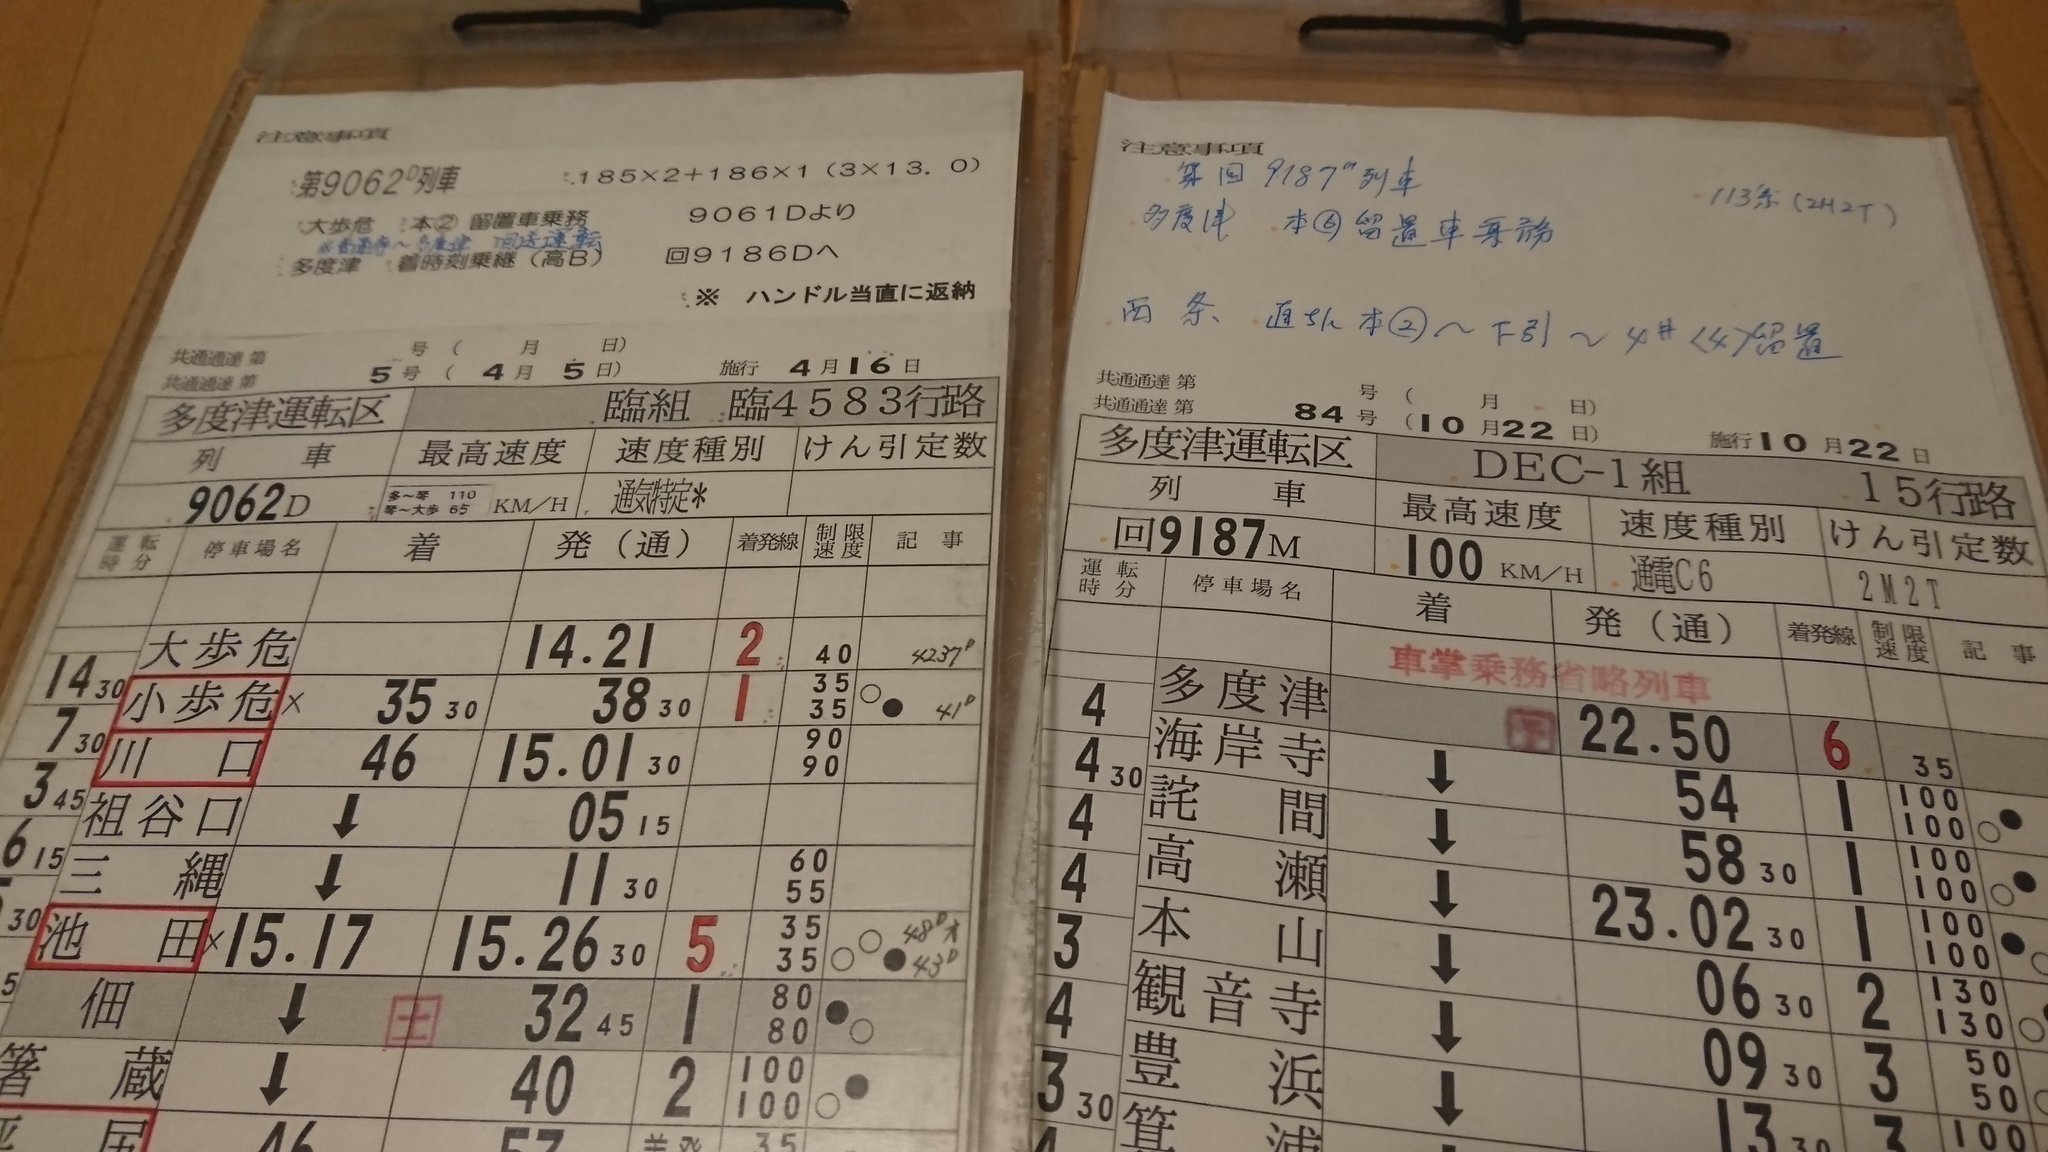 注意事項
第9062D列車 185×2+186×1(3×13.0)
大歩危 本② 留置車乗務 9061Dより
多度津 着時刻乗継(高B) 回9186Dへ
※ ハンドル当直に返納
共通通達 第 号( 月 日)
共通通達 第 5号(4月5日) 施行 4月16日
多度津運転区 臨組 臨4583行路
列車 最高速度 速度種別 けん引定数
9062D 多~琴 110 琴~大歩 65 KM/H 通気特定*
運転時分 停車場名 着 発(通) 着発線 制限速度 記事
大歩危 14.21 2 40 4237D
14 30
小歩危 × 35 30 38 30 1 35 35 ○● 41D
7 30
川口 46 15.01 30 90 90
3 45
祖谷口 ↓ 05 15
6 15
三縄 ↓ 11 30 60 55
30
池田 × 15.17 15.26 30 5 35 35 ○○● 48D 43D
5
佃 ↓ 土 32 45 1 80 80 ●○
箸蔵 ↓ 40 2 100 100 ●○
46 57 35
注意事項
第回9187M列車 113系(2M2T)
多度津 本⑥留置車乗務
西条 直ちに本②~下引~4井〈4〉留置
共通通達 第 号( 月 日)
共通通達 第 84号(10月22日) 施行10月22日
多度津運転区 DEC-1組 15行路
列車 最高速度 速度種別 けん引定数
回9187M 100 KM/H 通電C6 2M2T
運転時分 停車場名 着 発(通) 着発線 制限速度 記事
車掌乗務省略列車
多度津 22.50 6 35
4
海岸寺 ↓ 54 1 100 100 ○●
4 30
詫間 ↓ 58 30 1 100 100 ○●
4
高瀬 ↓ 23.02 30 1 100 100 ●○
4
本山 ↓ 06 30 2 130 130
3
観音寺 ↓ 09 30 3 50 50
4
豊浜 ↓ 13 30 3 100
3 30
箕浦